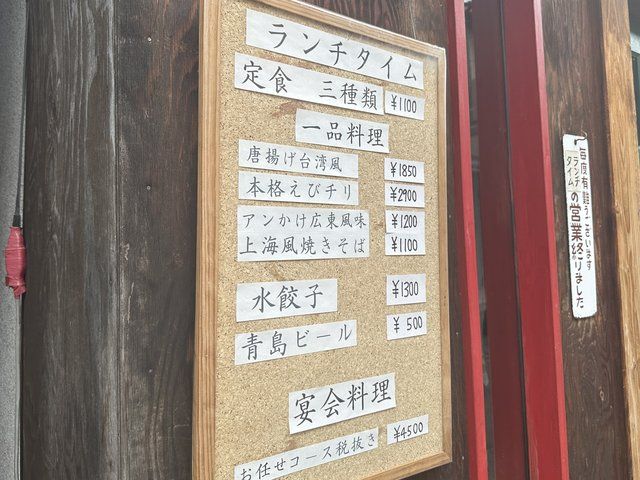 ランチタイム
定食 三種類 ¥1100
一品料理
唐揚げ台湾風 ¥1850
本格えびチリ ¥2900
アンかけ広東風味 ¥1200
上海風焼きそば ¥1100
水餃子 ¥1300
青島ビール ¥500
宴会料理
お任せコース税抜き ¥4500
毎度有難うございます
ランチタイムの営業終りました